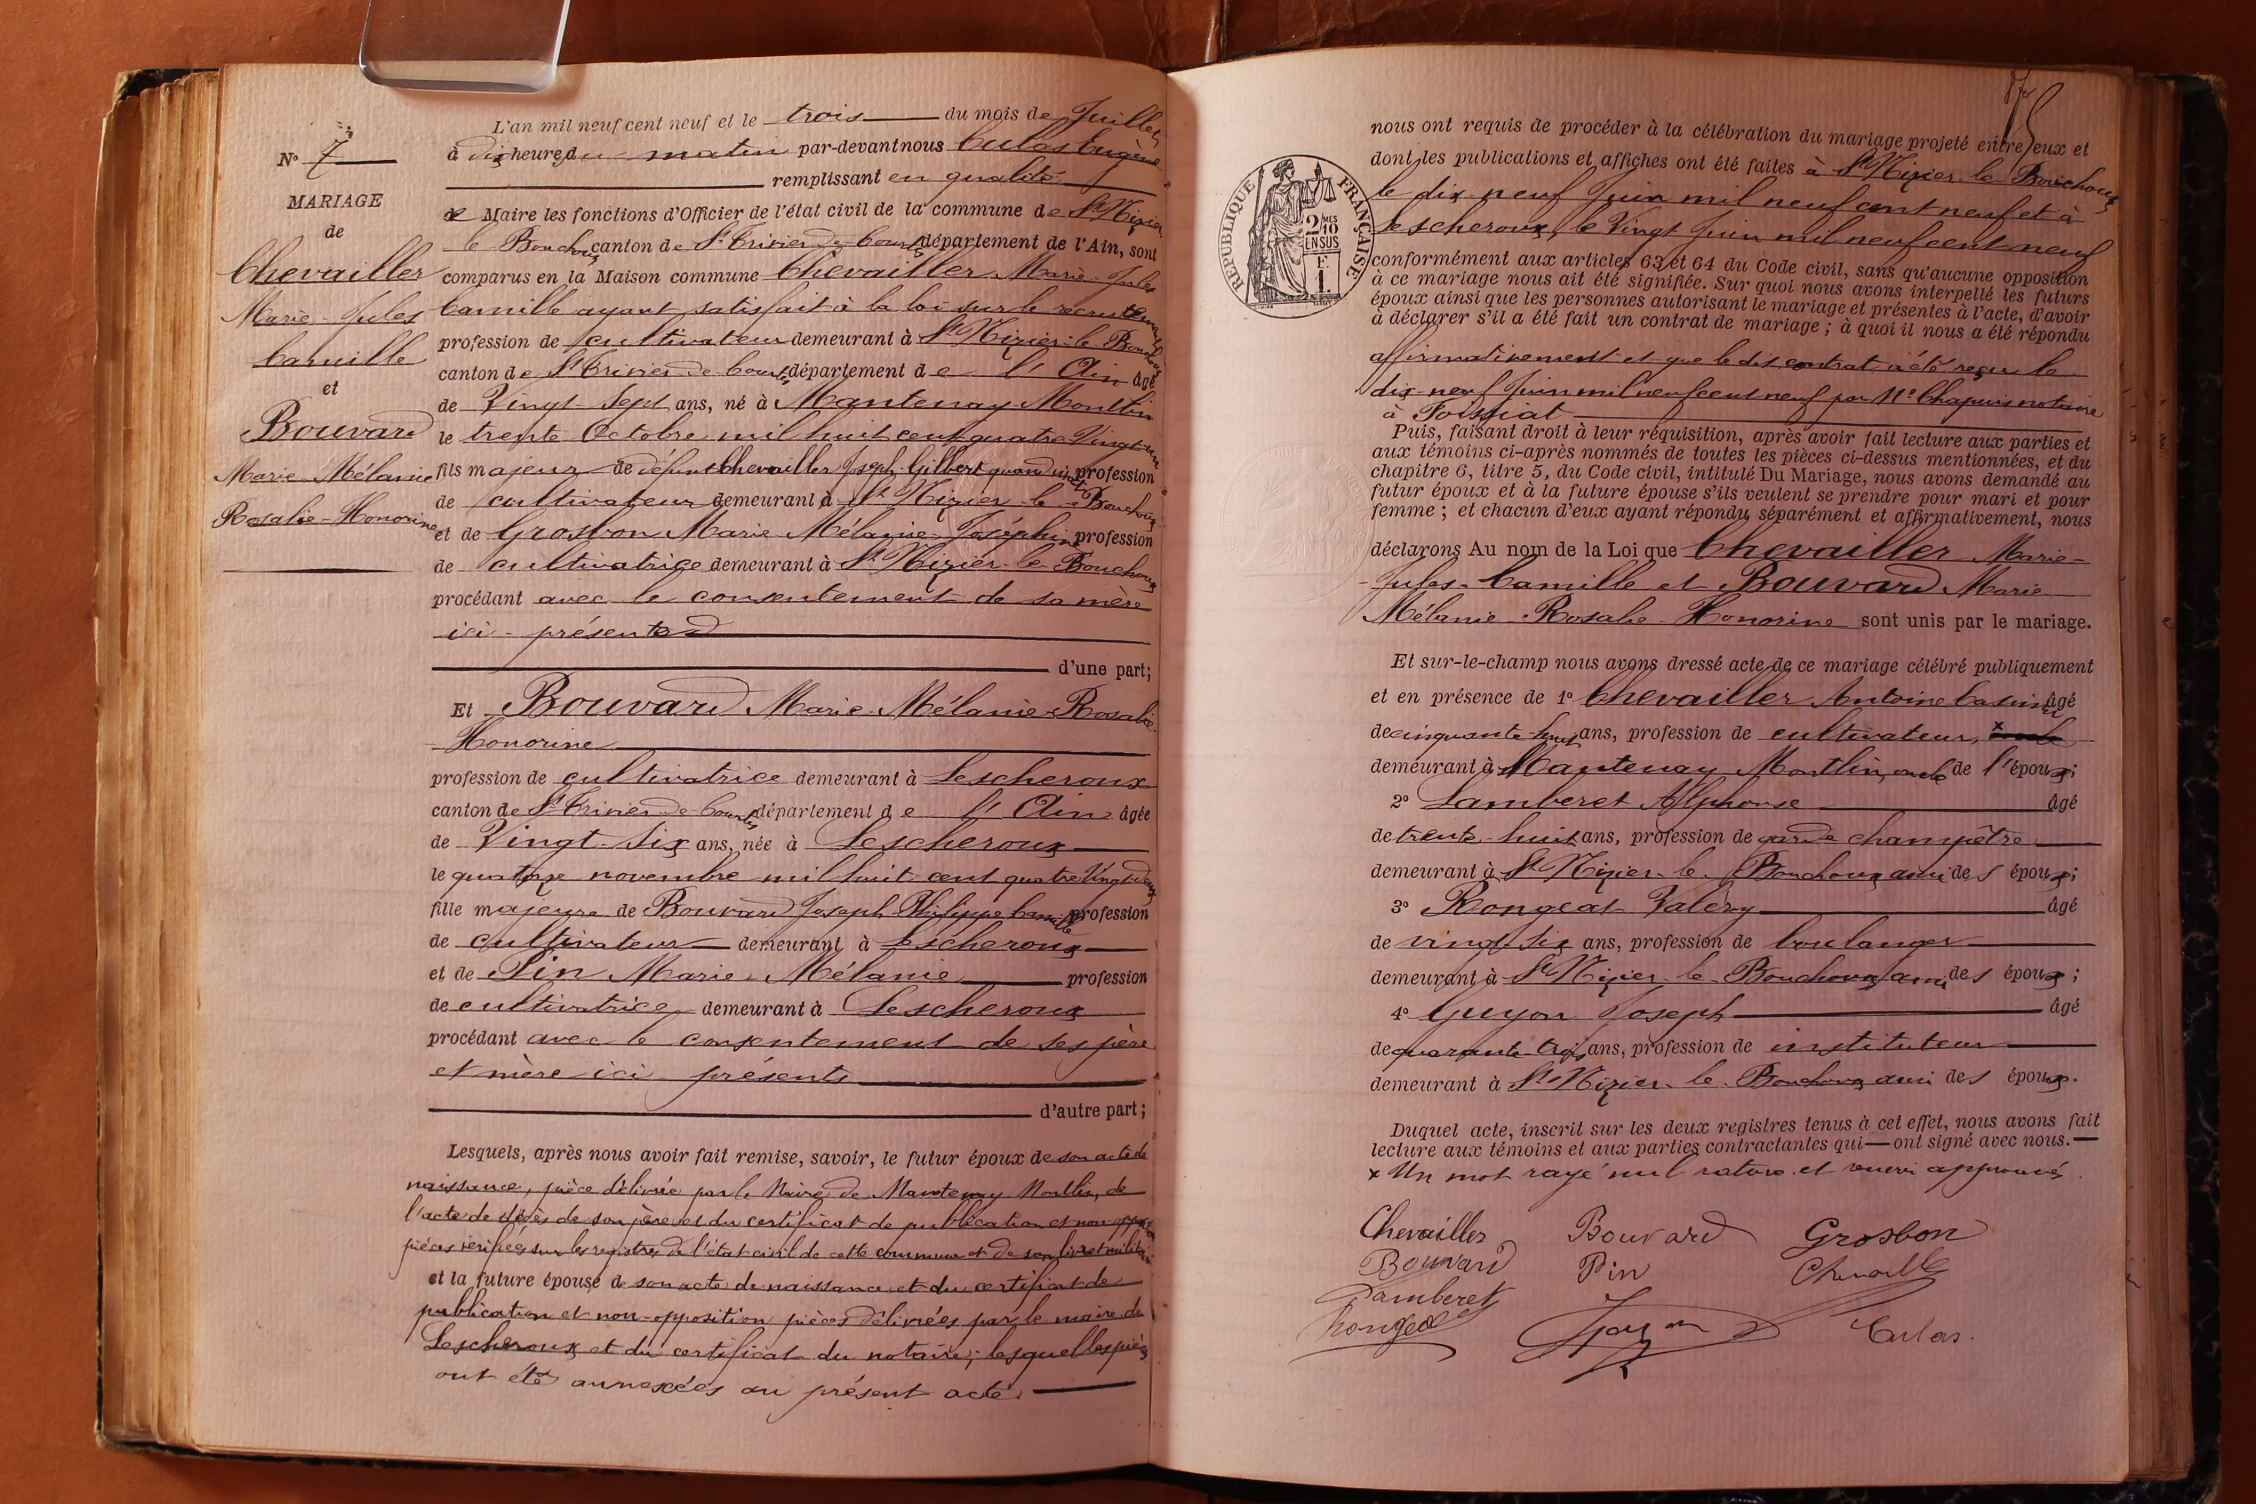 L'an mil neuf cent neuf et le trois du mois de Juillet
N° 7
à dix heures du matin par-devant nous Culas Eugène
remplissant en qualité
MARIAGE
de Maire les fonctions d'Officier de l'état civil de la commune de St Nizier
de
le Bouchoux canton de St Trivier de Courtes département de l'Ain, sont
Chevailler
comparus en la Maison commune Chevailler Marie-Jules
Marie-Jules
Camille ayant satisfait à la loi sur le recrutement
Camille
profession de cultivateur demeurant à St Nizier-le-Bouchoux
et
canton de St Trivier de Courtes département de l'Ain âgé
Bouvard
de Vingt-Sept ans, né à Mantenay Montlin
le trente Octobre mil huit cent quatre Vingt un
Marie-Mélanie
fils majeur de défunt Chevailler Joseph Gilbert quand vivait profession
Rosalie-Honorine
de cultivateur demeurant à St Nizier-le-Bouchoux
et de Grosbon Marie Mélanie Joséphine profession
de cultivatrice demeurant à St Nizier-le-Bouchoux
procédant avec le consentement de sa mère
ici-présente
d'une part;
Et Bouvard Marie-Mélanie-Rosalie
Honorine
profession de cultivatrice demeurant à Lescheroux
canton de St Trivier de Courtes département de l'Ain âgée
de Vingt-Six ans, née à Lescheroux
le quatorze novembre mil huit cent quatre Vingt deux
fille majeure de Bouvard Joseph Philippe Camille profession
de cultivateur demeurant à Lescheroux
et de Pin Marie-Mélanie profession
de cultivatrice demeurant à Lescheroux
procédant avec le consentement de ses père
et mère ici présents
d'autre part;
Lesquels, après nous avoir fait remise, savoir, le futur époux de son acte de
naissance, pièce délivrée par le Maire de Mantenay Montlin, de
l'acte de décès de son père et du certificat de publication et non opposition
pièces vérifiées sur les registres de l'état civil de cette commune et de son livret militaire
et la future épouse de son acte de naissance et du certificat de
publication et non-opposition pièces délivrées par le maire de
Lescheroux et du certificat du notaire; lesquelles pièces
ont été annexées au présent acte.
nous ont requis de procéder à la célébration du mariage projeté entre eux et
dont les publications et affiches ont été faites à St Nizier-le-Bouchoux
le dix-neuf Juin mil neuf cent neuf et à
Lescheroux, le Vingt Juin mil neuf cent neuf
RÉPUBLIQUE FRANÇAISE
2 MES
10
EN SUS
F.
1.
conformément aux articles 63 et 64 du Code civil, sans qu'aucune opposition
à ce mariage nous ait été signifiée. Sur quoi nous avons interpellé les futurs
époux ainsi que les personnes autorisant le mariage et présentes à l'acte, d'avoir
à déclarer s'il a été fait un contrat de mariage; à quoi il nous a été répondu
affirmativement et que le dit contrat a été reçu le
dix-neuf Juin mil neuf cent neuf par Me Chapuis notaire
à Foissiat
Puis, faisant droit à leur réquisition, après avoir fait lecture aux parties et
aux témoins ci-après nommés de toutes les pièces ci-dessus mentionnées, et du
chapitre 6, titre 5, du Code civil, intitulé Du Mariage, nous avons demandé au
futur époux et à la future épouse s'ils veulent se prendre pour mari et pour
femme; et chacun d'eux ayant répondu séparément et affirmativement, nous
déclarons Au nom de la Loi que Chevailler Marie-
Jules-Camille et Bouvard Marie
Mélanie-Rosalie-Honorine sont unis par le mariage.
Et sur-le-champ nous avons dressé acte de ce mariage célébré publiquement
et en présence de 1° Chevailler Antoine Casimir âgé
de cinquante-huit ans, profession de cultivateur, x oncle
demeurant à Mantenay Montlin, oncle de l'époux;
2° Lamberet Alphonse âgé
de trente-huit ans, profession de garde champêtre
demeurant à St Nizier-le-Bouchoux ami des époux;
3° Rongeat Valéry âgé
de vingt-six ans, profession de boulanger
demeurant à St Nizier-le-Bouchoux ami des époux;
4° Guyon Joseph âgé
de quarante-trois ans, profession de instituteur
demeurant à St Nizier-le-Bouchoux ami des époux.
Duquel acte, inscrit sur les deux registres tenus à cet effet, nous avons fait
lecture aux témoins et aux parties contractantes qui — ont signé avec nous. —
x Un mot rayé nul rature et renvoi approuvés.
Chevailler Bouvard Grosbon
Bouvard Pin Chevailler
Lamberet
Rongeat Guyon Culas.